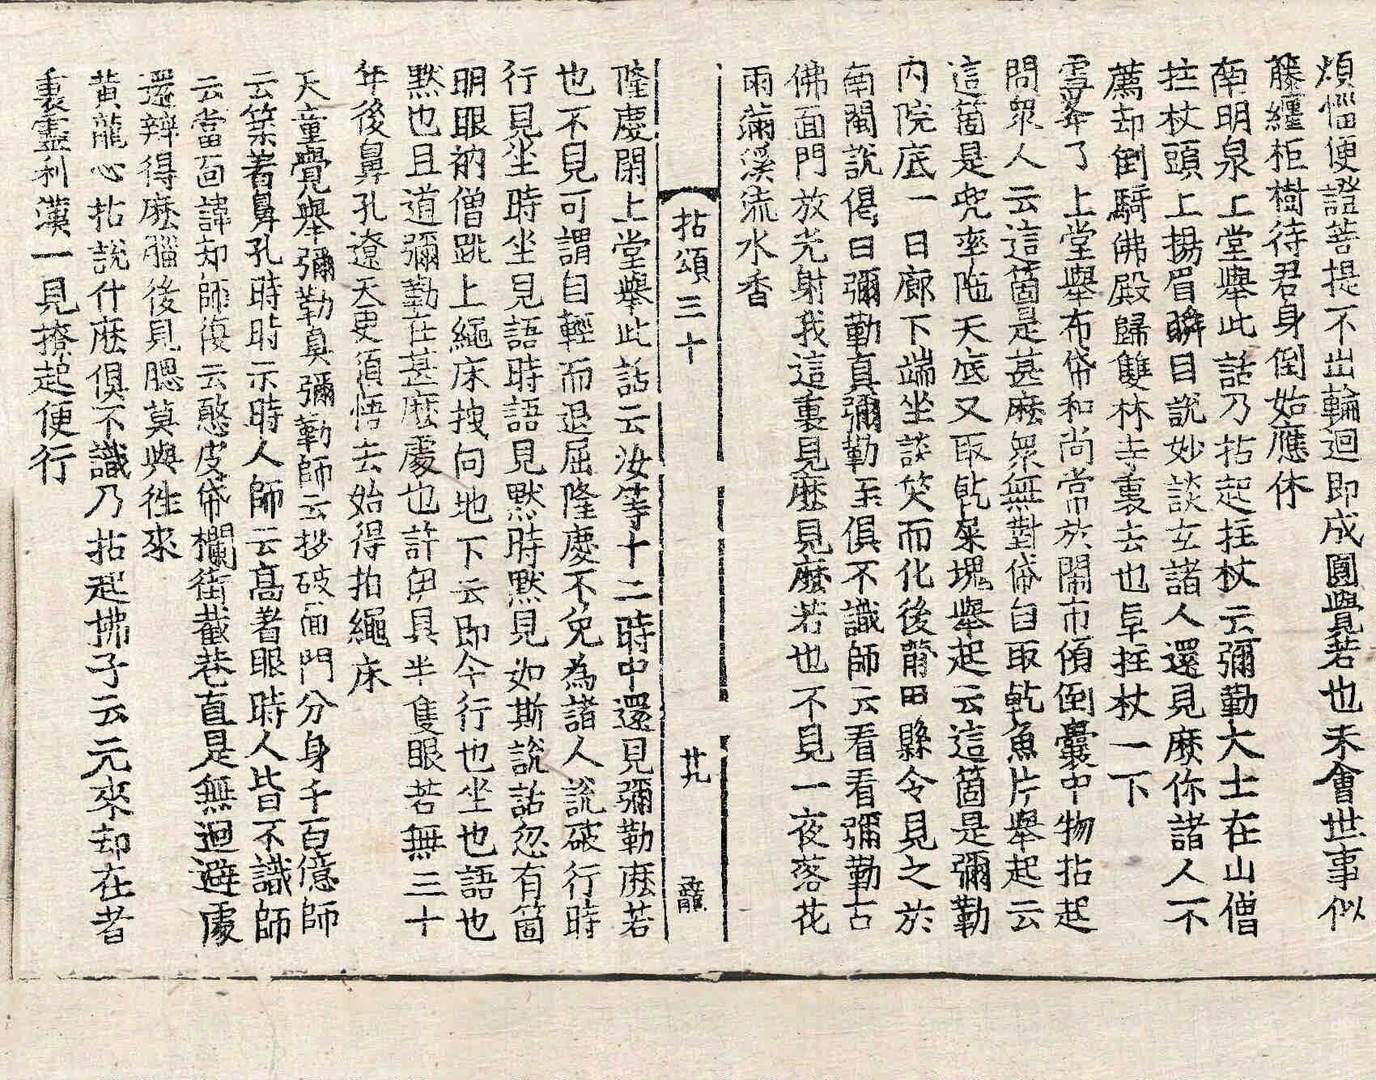 煩惱便證菩提不出輪迴即成圓覺若也未會世事似
藤纏柜樹待君身倒始應休
南明泉上堂舉此話乃拈起拄杖云彌勤大士在山僧
拄杖頭上揚眉瞬目說妙談玄諸人還見麽你諸人不
薦却倒騎佛殿歸雙林寺裏去也卓拄杖一下
雪峯了上堂舉布帒和尚常於閙市傾倒囊中物拈起
問衆人云這箇是甚麽衆無對帒自取乾魚片舉起云
這箇是兜率陁天底又取乾屎塊舉起云這箇是彌勤
內院底一日廊下端坐談笑而化後莆田縣令見之於
南閩說偈曰彌勤真彌勤至俱不識師云看看彌勤古
佛面門放光射我這裏見麽見麽若也不見一夜落花
雨滿溪流水香
拈頌三十 廿九 龍
隆慶閑上堂舉此話云汝等十二時中還見彌勒麽若
也不見可謂自輕而退屈隆慶不免為諸人說破行時
行見坐時坐見語時語見默時默見如斯說話忽有箇
明眼衲僧跳上繩床拽向地下云即今行也坐也語也
默也且道彌勤在甚麽處也許伊具半隻眼若無三十
年後鼻孔遼天更須悟去始得拍繩床
天童覺舉彌勒真彌勒師云拶破面門分身千百億師
云築著鼻孔時時示時人師云高著眼時人皆不識師
云當面諱却師復云憨皮帒欄街截巷直是無迴避處
還辨得麽腦後見腮莫與徃來
黃龍心拈說什麽俱不識乃拈起拂子云元來却在者
裏靈利漢一見撩起便行